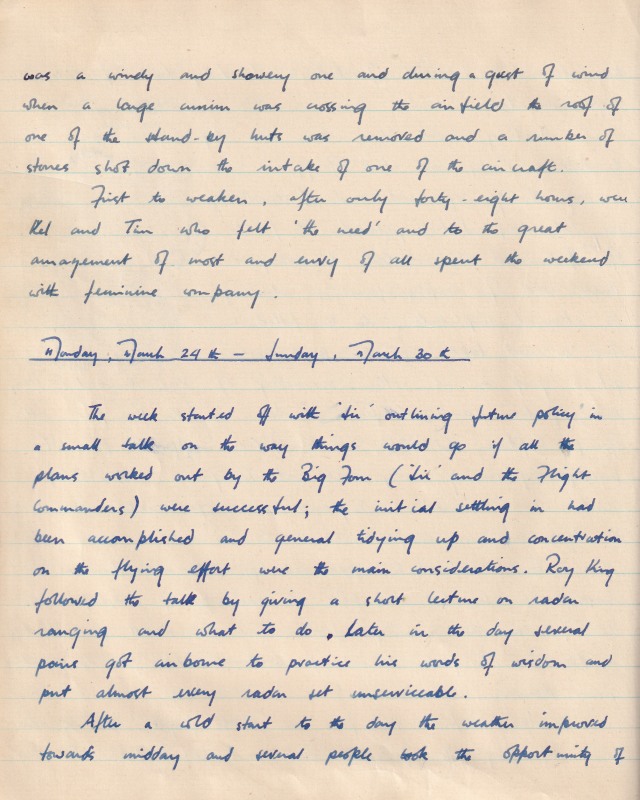 was a windy and showery one and during a gust of wind
when a large cunim was crossing the airfield the roof of
one of the stand-by huts was removed and a number of
stones shot down the intake of one of the aircraft.
First to weaken, after only forty-eight hours, were
Mel and Tim who felt 'the need' and to the great
amazement of most and envy of all spent the weekend
with feminine company.
Monday, March 24th - Sunday, March 30th
The week started off with 'Sir' outlining future policy in
a small talk on the way things would go if all the
plans worked out by the Big Four ('Sir' and the Flight
Commanders) were successful; the initial settling in had
been accomplished and general tidying up and concentration
on the flying effort were the main considerations. Ray King
followed the talk by giving a short lecture on radar
ranging and what to do. Later in the day several
pairs got airborne to practice his words of wisdom and
put almost every radar set unserviceable.
After a cold start to the day the weather improved
towards midday and several people took the opportunity of